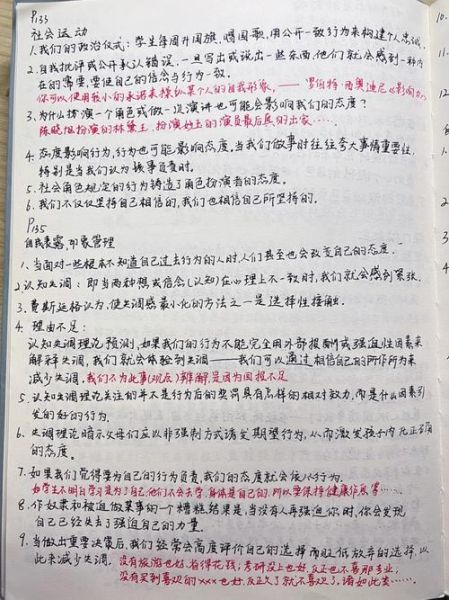 P133
社会运动
1.我们的政治仪式：学生每周升国旗，唱国歌，用公开一致行为来构建个人忠诚。
2.自我批评或公开承认错误，一旦写出或说出一些东西，他们就会感到一种内
在的需要，要使自己的信念与行为一致。
你可以使用较小的承诺来操纵某个人的自我形象，—— 罗伯特·西奥迪尼《影响力》
3.为什么扮演一个角色或做一次演讲也可能会影响我们的态度？
陈晓旭扮演的林黛玉，扮演妙玉的演员最后真的出家……，
4.态度影响行为，行为也可能影响态度。当我们做事时往往夸大事情重要性，
特别是当我们认为该事负责时。
5.社会角色规定的行为铸造了角色扮演者的态度。
6.我们不仅仅坚持自己相信的，我们也相信自己所坚持的。
P135
自我表露，印象管理
1、当面对一些根本不知道自己过去行为的人时，人们甚至也会改变自己的态度。
2.认知失调：即当两种想或信念（认知）在心理上不一致时，我们就会感到紧张。
3、费斯廷格认为，使失调感最小化的方法之一是选择性接触。
4. 理由不足：
认知失调理论预测，如果我们的行为不能完全用外部报酬或强迫性因素来
解释时，我们就会体验到失调——我们可以通过相信自己的所作所为来
减少失调。我们不为此事（现在）辩解，是因为回报不足
5、认知失调理论关注的并不是行为后的奖罚具有怎样的相对效力，而是什么因素引
发的好的行为。
6.失调理论暗示父母们应以非强制方式诱发期望行为，从而激发孩子内化正确的
态度。
7.如果我们觉得要为自己的行为负责，我们的态度就会依从行为。
如学生不明白学习是为了自己，他们不会去学，身体是自己的，所以要保持健康作息等……
8.作奴隶和被迫做某事的一个糟糕结果是，当没有人再强迫你时，你会发现
自己已经失去了强迫自己的力量。
9、当做出重要决策后，我们经常会高度评价自己的选择而贬低放弃的选择，以
此来减少失调。没有旅游也好，省得花钱；考研没上也好，反正也不喜那专业，
没有买到喜欢的xxx也好，反正久了就不喜欢了。诸如此类……，